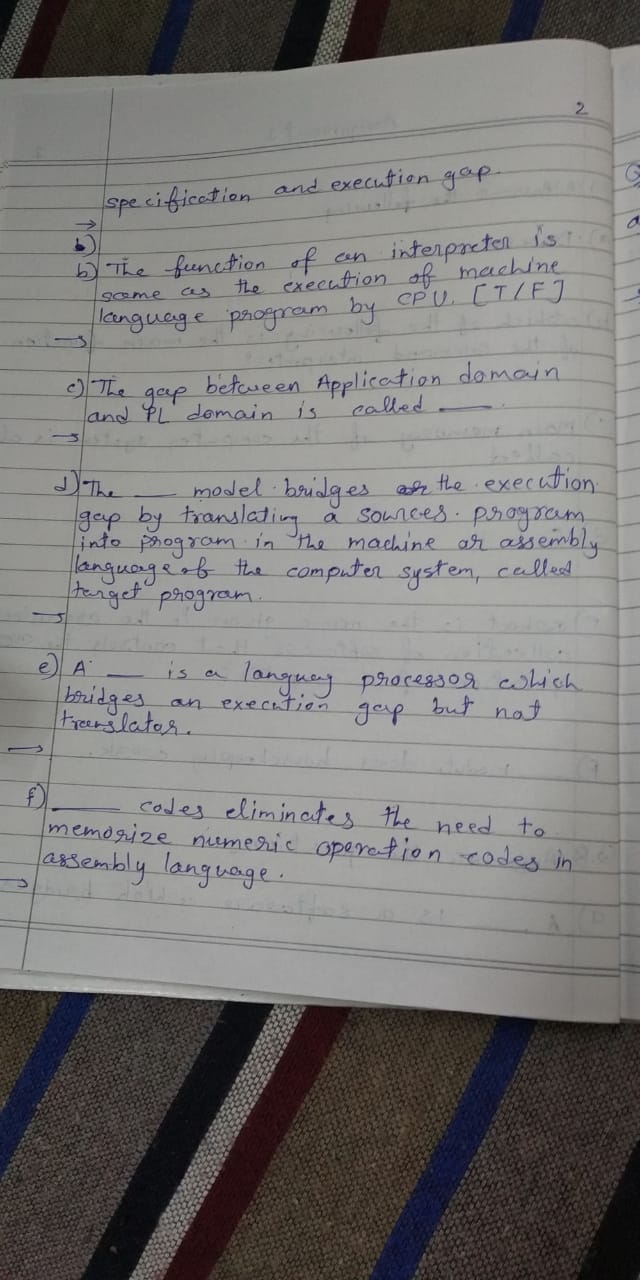 2
specification and execution gap.
→
b)
b) The function of an interpreter is
same as the execution of machine
language program by CPU. [T/F]
→
c) The gap between Application domain
and PL domain is called ___.
→
d) The ___ model bridges the execution
gap by translating a sources program
into program in the machine or assembly
language of the computer system, called
target program.
→
e) A ___ is a languag processor which
bridges an execution gap but not
translator.
→
f) ___ codes eliminates the need to
memorize numeric operation codes in
assembly language.
→